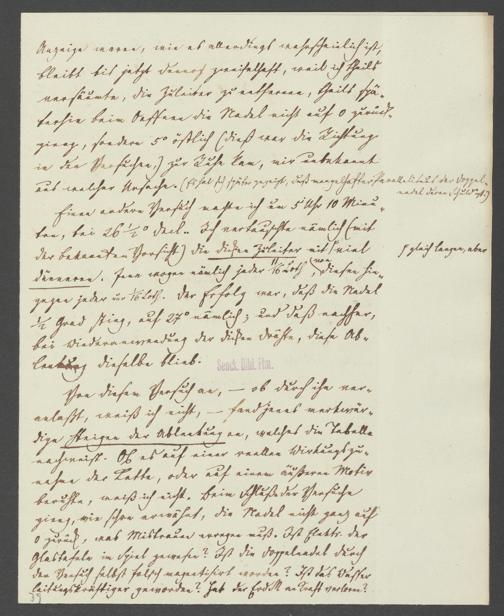 Anzeige waren, wie es allerdings wahrscheinlich ist,
bleibt bis jetzt dennoch zweifelhaft, weil ich theils
versäumte, die Zuleiter zu entfernen, theils spä-
terhin beim Oeffnen die Nadel nicht auf 0 zurück-
gieng, sondern 5° östlich (dieß war die Richtung
in den Versuchen) zur Ruhe kam, mir unbekannt
aus welcher Ursache. (Es hat sich später gezeigt, daß mangelhafter Parallelismus der Doppel-
nadel daran Schuld ist)
Einen anderen Versuch machte ich um 5 Uhr 10 Minu-
ten, bei 26 ½° Decl. Ich vertauschte nämlich (mit
der bekannten Vorsicht) die dicken Zuleiter mit viel
gleich langen, aber
dünneren. Jene wogen nämlich jeder Loth, diese hin-
gegen jeder nur 1/16 Loth. Der Erfolg war, daß die Nadel
½ Grad stieg, auf 27° nämlich; und daß nachher,
bei Wiederanwendung der dicken Drähte, diese Ab-
lenkung dieselbe blieb.
Senck. Bibl. Ffm.
Von diesem Versuch an, — ob durch ihn ver-
anlaßt, weiß ich nicht, — fand jenes merkwür-
dige Steigen der Ablenkung an, welches die Tabelle
nachweist. Ob es auf einer reellen Wirkungszu-
nahme der Kette, oder auf einem äußeren Motiv
beruhte, weiß ich nicht. Beim Schluße der Versuche
gieng, wie schon erwähnt, die Nadel nicht ganz auf
0 zurück, was Mistrauen erregen muß. Ist Elektr. der
Glastafeln im Spiel gewesen? Ist die Doppelnadel durch
den Versuch selbst falsch magnetisirt worden? Ist das Wasser
leitungskräftiger geworden? Hat der Erdm. an Kraft verloren?